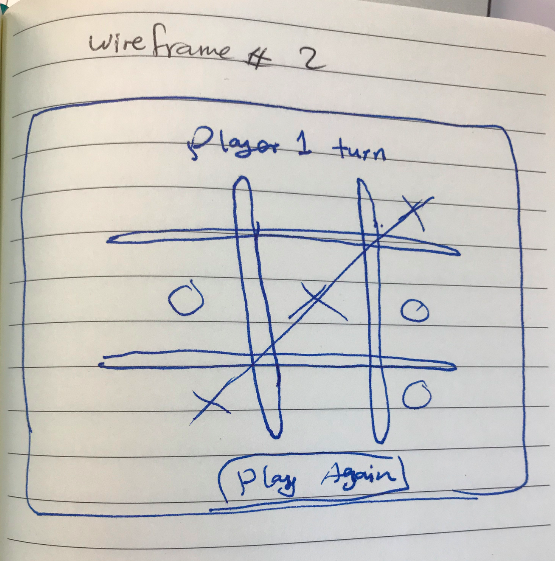 wireframe # 2
Player 1 turn
X
O X O
X O
Play Again